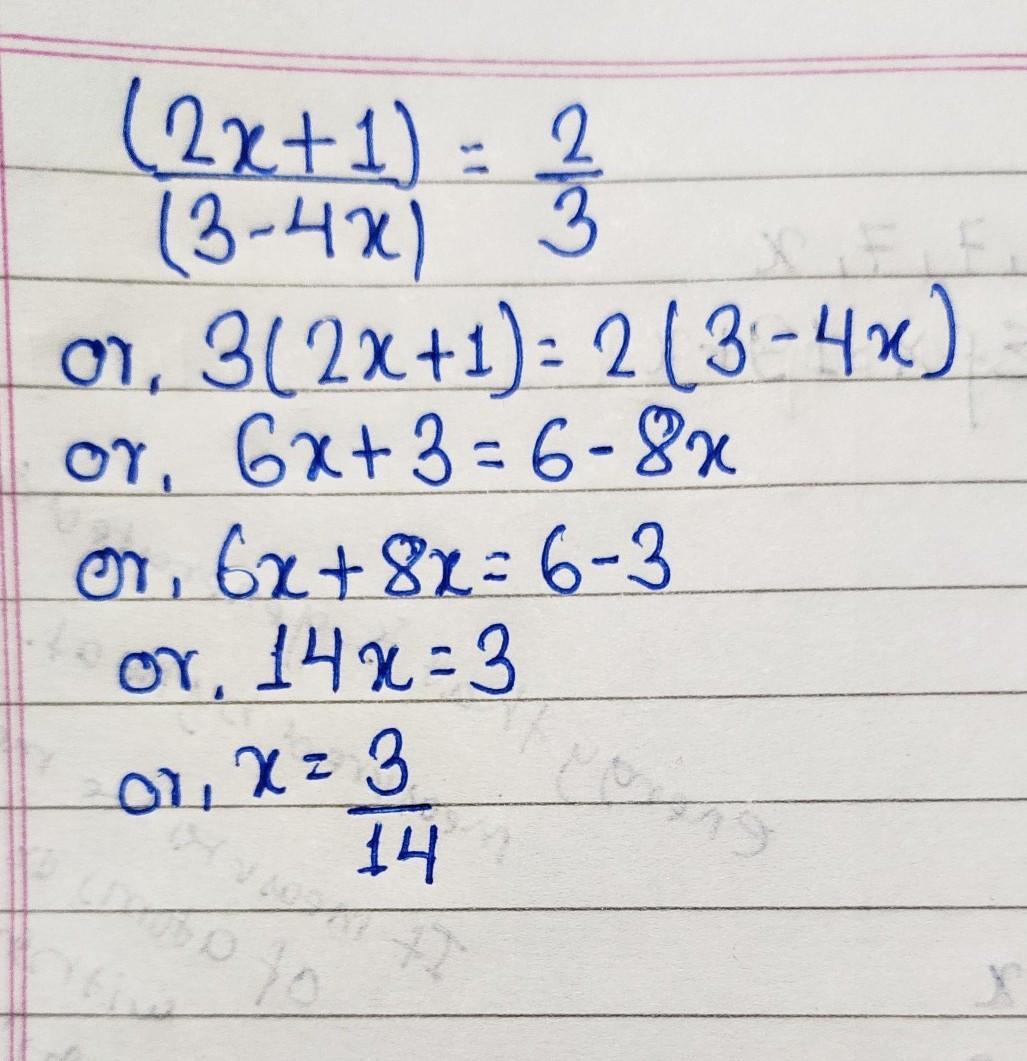 (2x+1)/(3-4x) = 2/3
or, 3(2x+1)=2(3-4x)
or, 6x+3=6-8x
or, 6x+8x=6-3
or, 14x=3
or, x=3/14